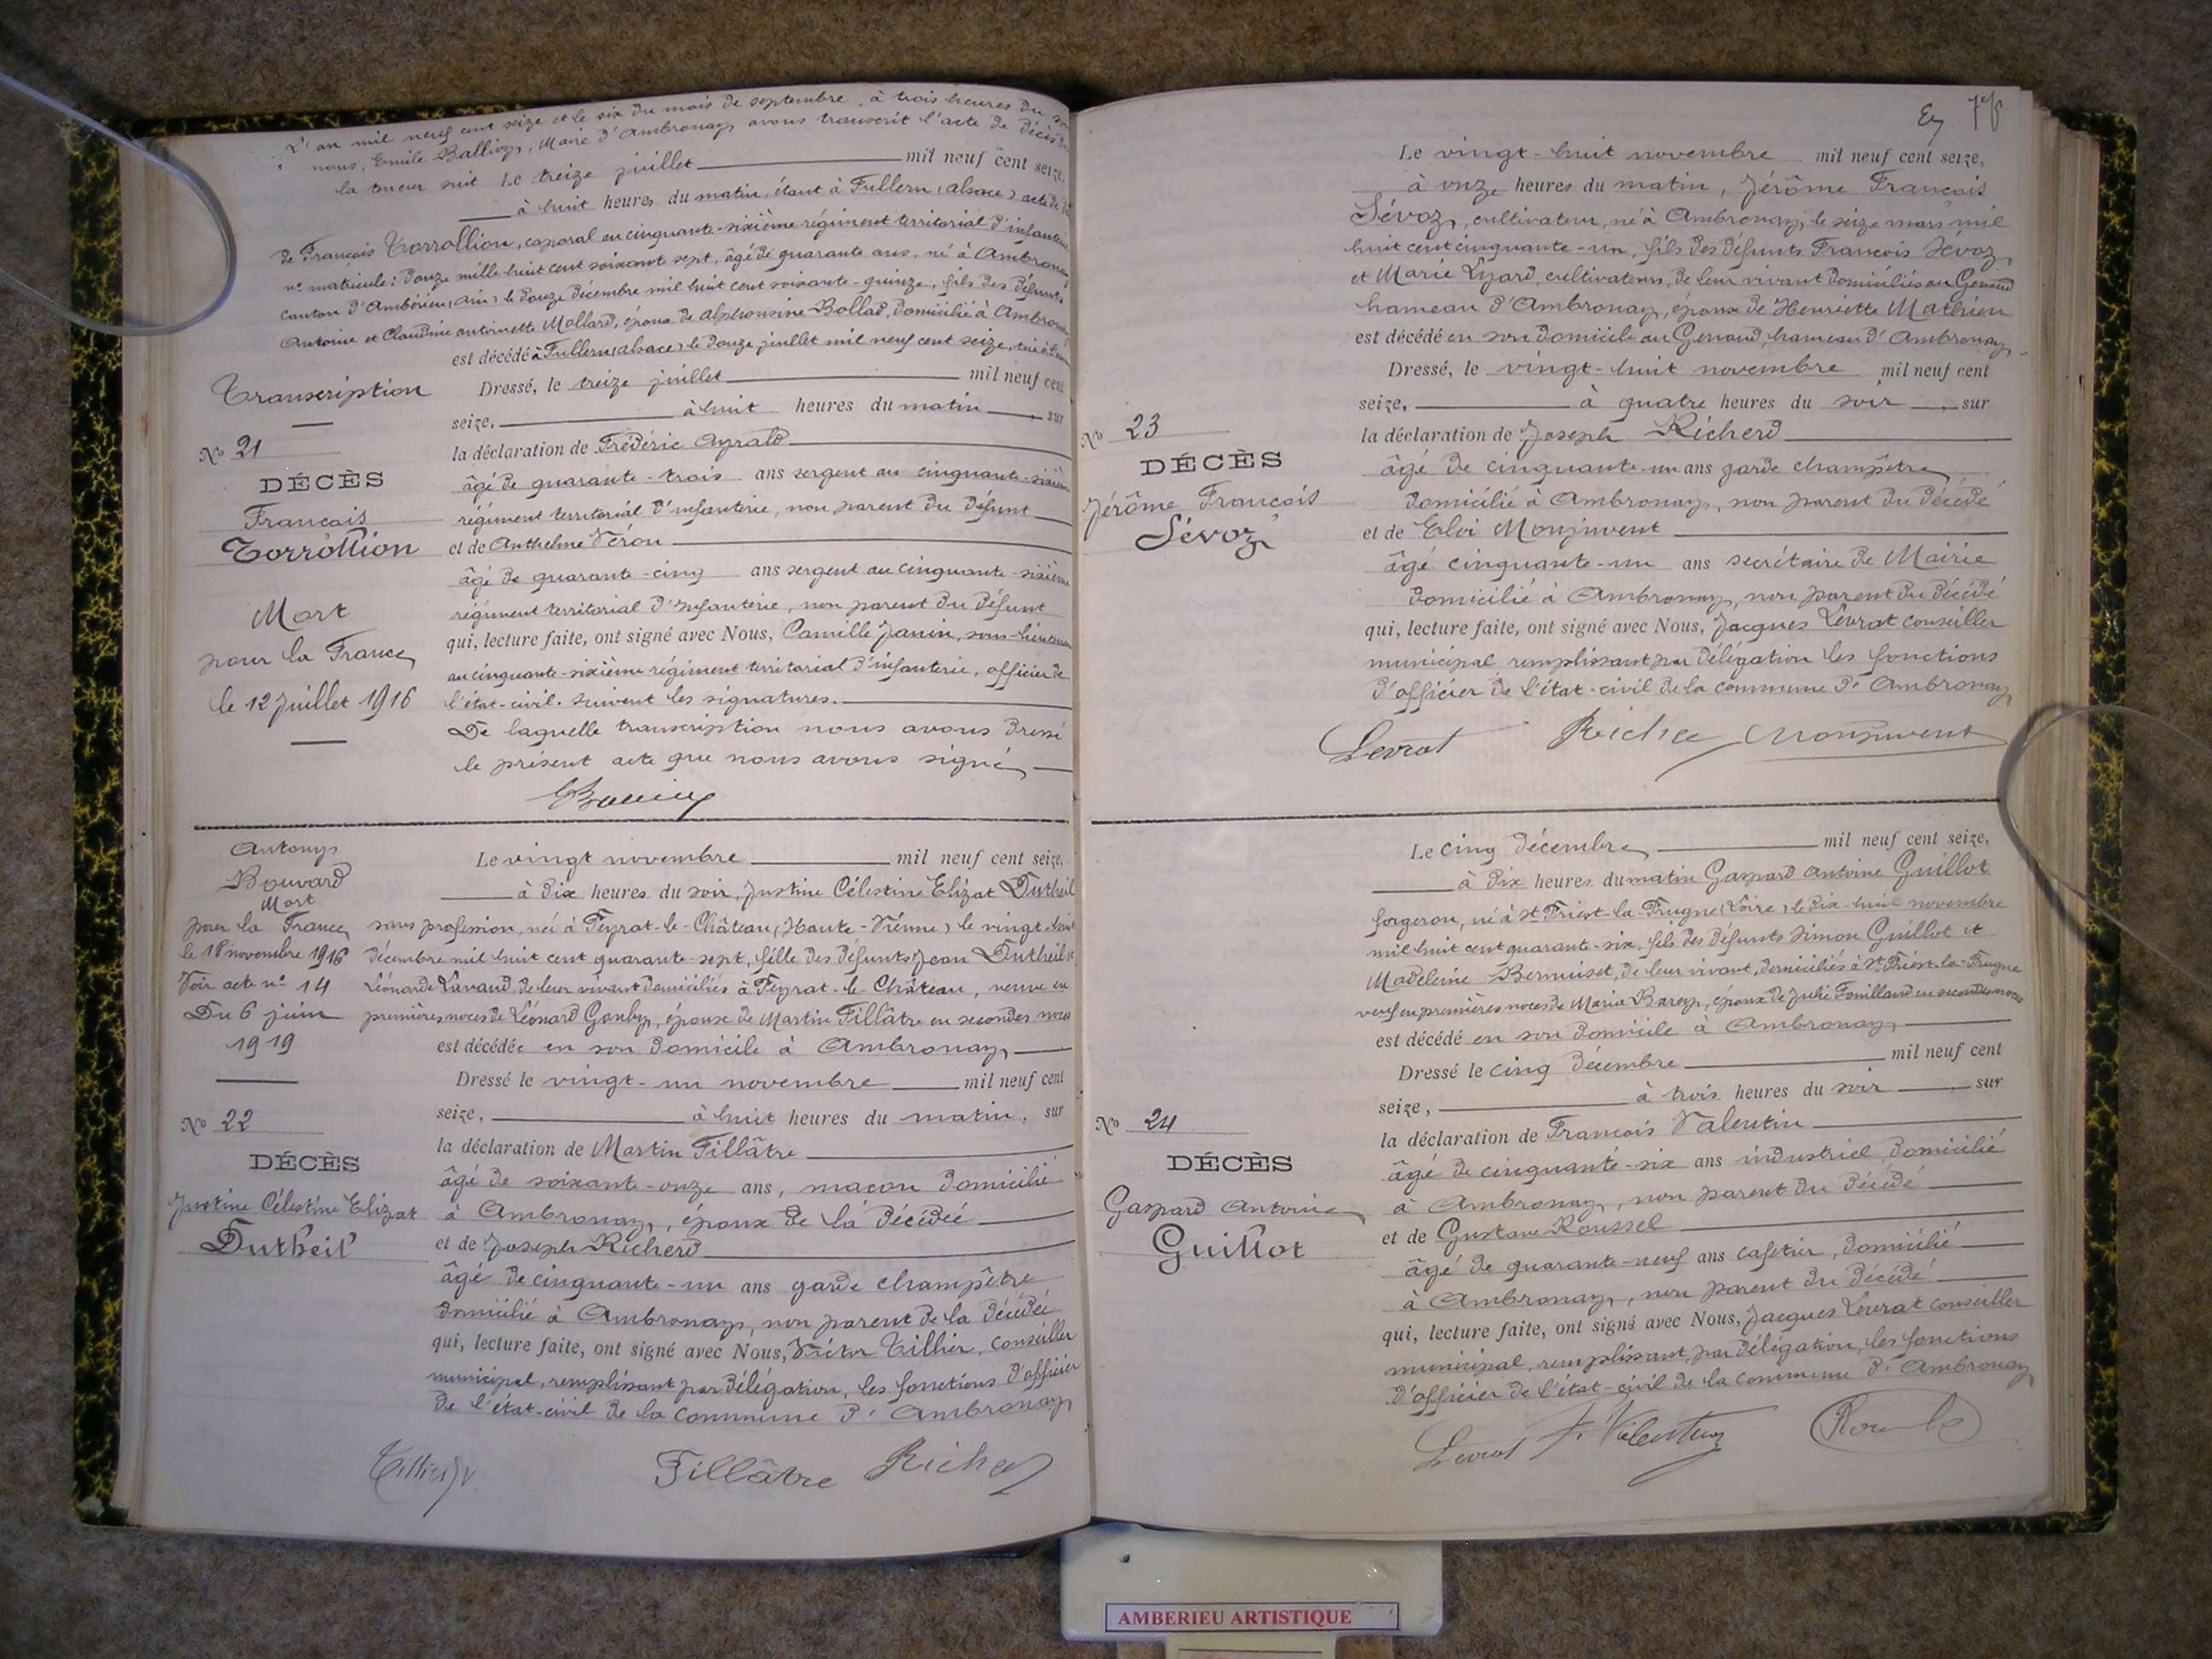 L'an mil neuf cent seize et le six du mois de septembre, à trois heures du soir
nous, Emile Ballivy, Maire d'Ambronay avons transcrit l'acte de décès
la teneur suit Le treize juillet mil neuf cent seize,
à huit heures du matin, étant à Fullern (alsace) acte de
de François Torrollion, caporal au cinquante-sixième régiment territorial d'infanterie
n° matricule: douze mille huit cent soixante sept, âgé de quarante ans, né à Ambronay
canton d'Ambérieu, (Ain) le douze décembre mil huit cent soixante-quinze, fils des défunts
Antoine et Claudine antoinette Mollard, époux de alphonsine Bollad, domicilié à Ambronay
est décédé à Fullern (alsace) le douze juillet mil neuf cent seize, tué
Transcription
Dressé, le treize juillet mil neuf cent
seize, à huit heures du matin, sur
N° 21
la déclaration de Frédéric Ayrald
DÉCÈS
âgé de quarante-trois ans sergent au cinquante-sixième
François
régiment territorial d'infanterie, non parent du défunt
Torrollion
et de Anthelme Véron
âgé de quarante-cinq ans sergent au cinquante-sixième
Mort
régiment territorial d'infanterie, non parent du défunt
pour la France
qui, lecture faite, ont signé avec Nous, Camille Janin, sous-lieutenant
au cinquante-sixième régiment territorial d'infanterie, officier de
le 12 juillet 1916
l'état-civil. suivent les signatures.
De laquelle transcription nous avons dressé
le présent acte que nous avons signé
Antony
Bouvard
Mort
pour la France
le 18 novembre 1916
Voir acte n° 14
Du 6 juin
1919
Le vingt novembre mil neuf cent seize,
à dix heures du soir, Justine Célestine Elizat Dutheil
sans profession, née à Peyrat-le-Château, (Haute-Vienne) le vingt-huit
décembre mil huit cent quarante-sept, fille des défunts Jean Dutheil et
Léonarde Lavaud, de leur vivant domiciliés à Peyrat-le-Château, veuve en
premières noces de Léonard Gouby, épouse de Martin Fillâtre en secondes noces
est décédée en son domicile à Ambronay
Dressé le vingt-un novembre mil neuf cent
seize, à huit heures du matin, sur
N° 22
la déclaration de Martin Fillâtre
DÉCÈS
âgé de soixante-onze ans, maçon domicilié
Justine Célestine Elizat
à Ambronay, époux de la décédée
Dutheil
et de Joseph Richerd
âgé de cinquante-un ans garde champêtre
domicilié à Ambronay, non parent de la décédée
qui, lecture faite, ont signé avec Nous, Victor Tillier, conseiller
municipal, remplissant par délégation, les fonctions d'officier
de l'état-civil de la commune d'Ambronay
Tillier V. Fillâtre Richerd
Le vingt-huit novembre mil neuf cent seize,
à onze heures du matin, Jérôme François
Sévoz, cultivateur, né à Ambronay, le seize mars mil
huit cent cinquante-un, fils des défunts François Sevoz,
et Marie Lyard, cultivateurs, de leur vivant domiciliés au Genoud
hameau d'Ambronay, époux de Henriette Mathieu
est décédé en son domicile au Genoud, hameau d'Ambronay
Dressé, le vingt-huit novembre mil neuf cent
seize, à quatre heures du soir, sur
N° 23
la déclaration de Joseph Richerd
DÉCÈS
âgé de cinquante-un ans garde champêtre
Jérôme François
domicilié à Ambronay, non parent du décédé
Sévoz
et de Eloi Monjuvent
âgé cinquante-un ans secrétaire de Mairie
domicilié à Ambronay, non parent du décédé
qui, lecture faite, ont signé avec Nous, Jacques Levrat conseiller
municipal remplissant par délégation les fonctions
d'officier de l'état-civil de la commune d'Ambronay
Levrat Richerd Monjuvent
Le cinq décembre mil neuf cent seize,
à dix heures du matin Gaspard Antoine Guillot
forgeron, né à St Priest-la-Prugne (Loire) le dix-huit novembre
mil huit cent quarante-six, fils des défunts Simon Guillot et
Madeleine Bernuiset, de leur vivant, domiciliés à St Priest-la-Prugne
veuf en premières noces de Maria Barey, époux de Julie Fouilland en secondes noces
est décédé en son domicile à Ambronay
Dressé le cinq décembre mil neuf cent
seize, à trois heures du soir, sur
N° 24
la déclaration de François Valentin
DÉCÈS
âgé de cinquante-six ans industriel, domicilié
Gaspard Antoine
à Ambronay, non parent du décédé
Guillot
et de Gustave Roussel
âgé de quarante-neuf ans cafetier, domicilié
à Ambronay, non parent du décédé
qui, lecture faite, ont signé avec Nous, Jacques Levrat conseiller
municipal, remplissant, par délégation, les fonctions
d'officier de l'état-civil de la commune d'Ambronay
Levrat F. Valentin
AMBERIEU ARTISTIQUE